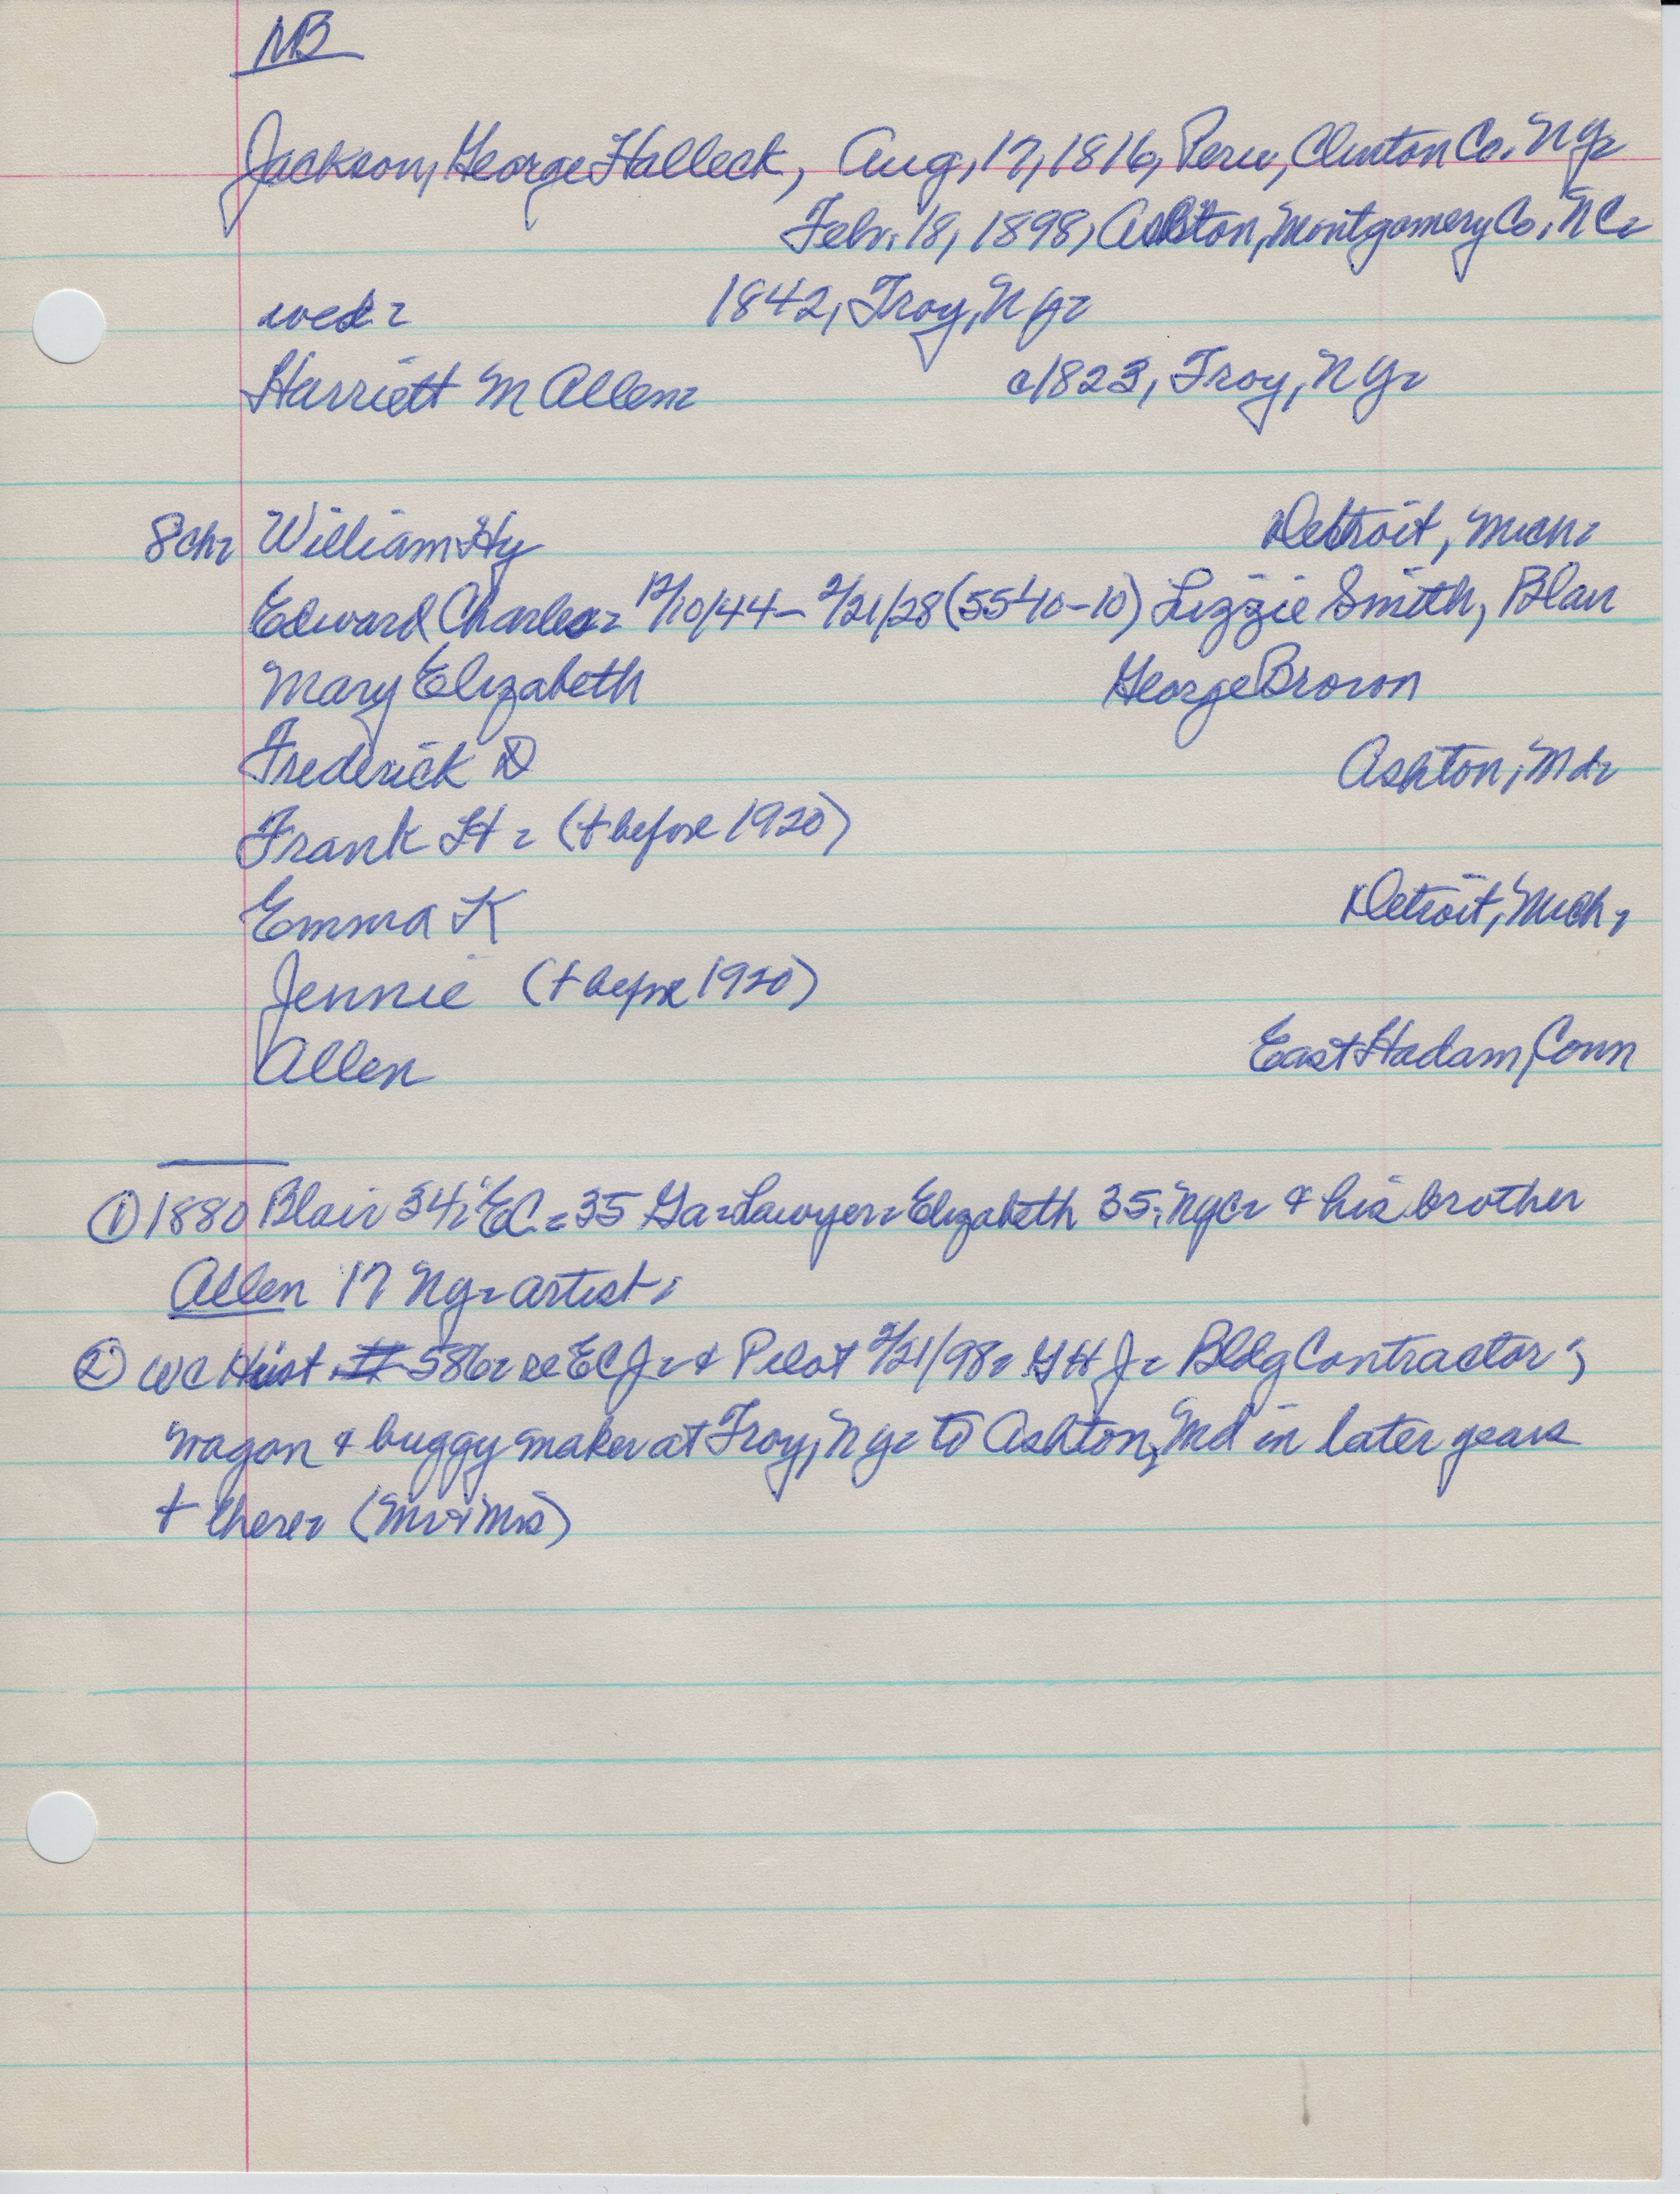 NB
Jackson, George Halleck, Aug, 17, 1816, Peru, Clinton Co. NY.
Febr. 18, 1898, Ashton, Montgomery Co, NC.
wed. 1842, Troy, NY.
Harriett M Allen. c1823, Troy, NY.
8ch. William Hy Detroit, Mich.
Edward Charles. 12/10/44 - 2/21/28 (5540-10) Lizzie Smith, Blair
Mary Elizabeth George Brown
Frederick D Ashton, Md.
Frank H. († before 1920)
Emma K Detroit, Mich,
Jennie († before 1920)
Allen East Hadam, Conn
① 1880 Blair 34; EC. 35 Ga. Lawyer. Elizabeth 35; & his brother
Allen 17 Ny. artist.
② WC Hist 586. EC J. & Pilot 2/21/98. GH J. Bldg Contractor;
wagon & buggy maker at Troy, Ny. to Ashton, Md in later years
† there. (Mr & Mrs)